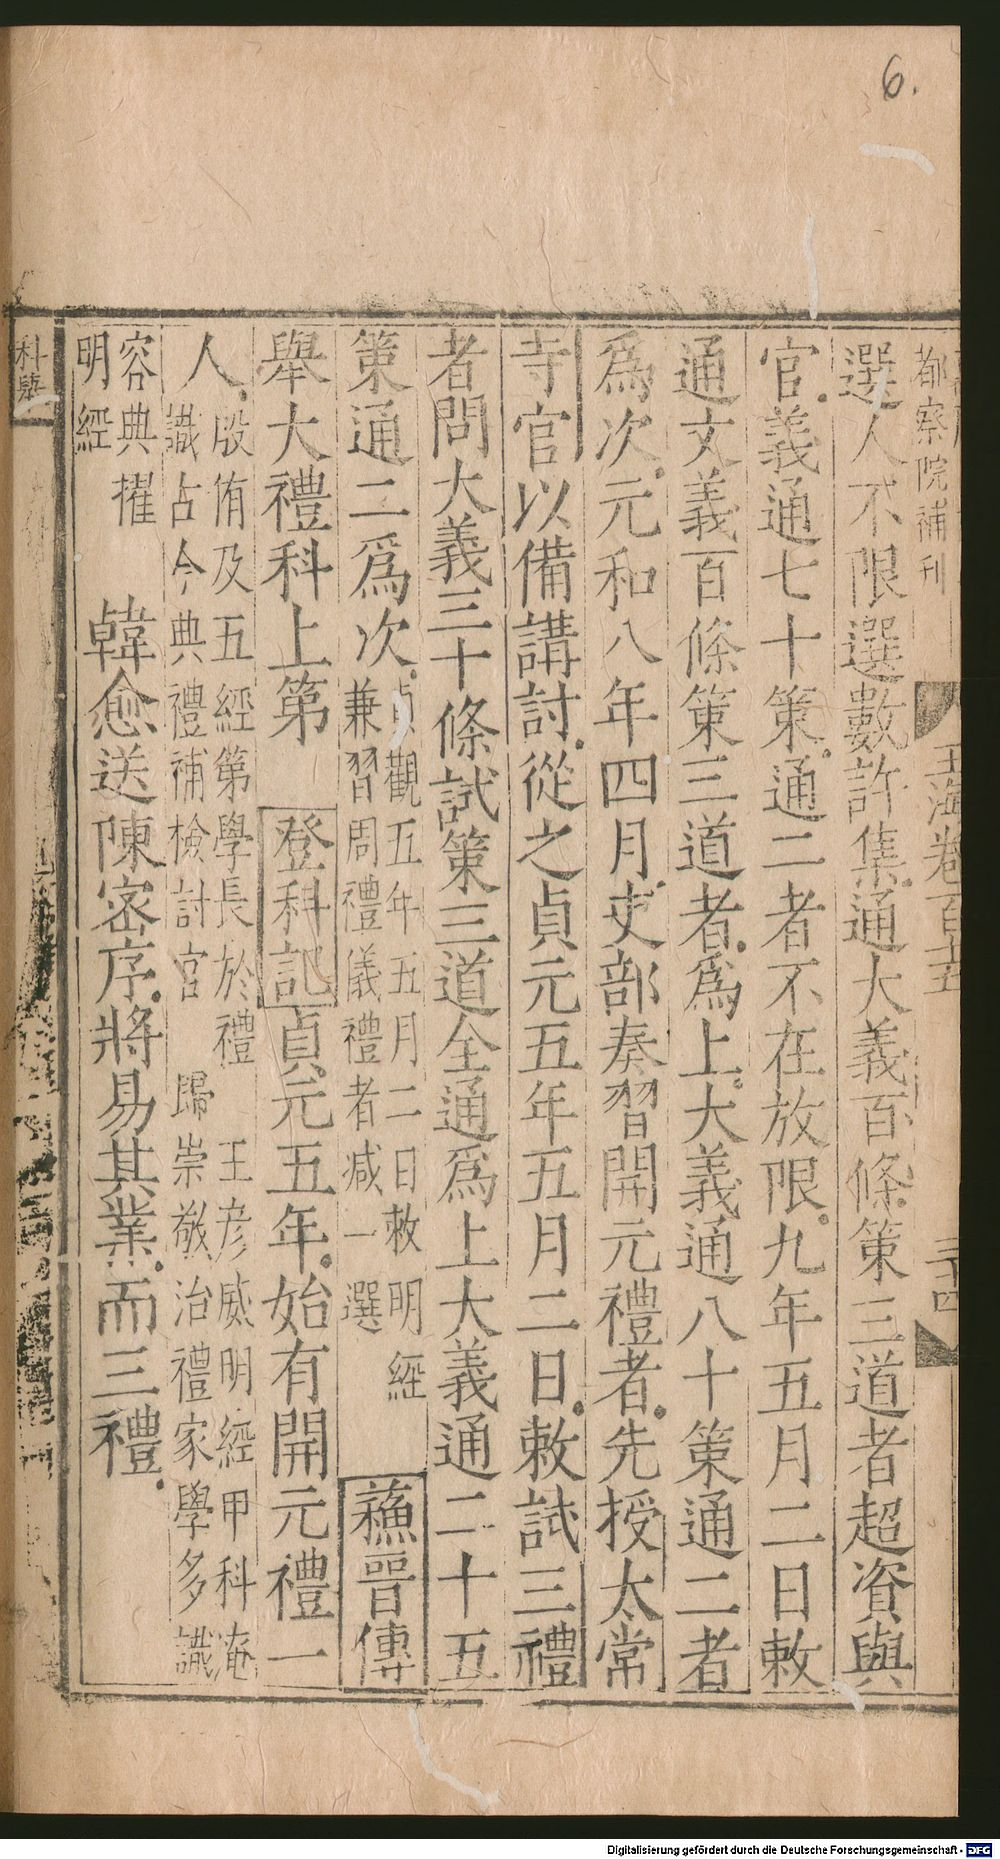 6.
都察院補刊
玉海卷百十五
三十四
選人不限選數許集通大義百條策三道者超資與
官義通七十策通二者不在放限九年五月二日敕
通文義百條策三道者爲上大義通八十策通二者
爲次元和八年四月吏部奏習開元禮者先授太常
寺官以備講討從之貞元五年五月二日敕試三禮
者問大義三十條試策三道全通爲上大義通二十五
策通二爲次貞觀五年五月二日敕明經
兼習周禮儀禮者減一選
蘇晉傳
舉大禮科上第 登科記貞元五年始有開元禮一
人殷侑及五經第學長於禮 王彦威明經甲科淹
識古今典禮補檢討官 歸崇敬治禮家學多識
容典擢
明經
韓愈送陳密序將易其業而三禮
科舉
Digitalisierung gefördert durch die Deutsche Forschungsgemeinschaft - DFG